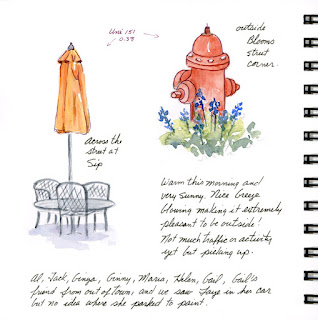 Uni 151
0.38
outside
Blooms
street
corner.
across the
street at
Sip
Warm this morning and
very sunny. Nice breeze
blowing making it extremely
pleasant to be outside!
Not much traffic or activity
yet but picking up.
Al, Jack, Ginga, Ginny, Maria, Helen, Gail, Gail's
friend from out of town, and we saw Faye in her car
but no idea where she parked to paint.